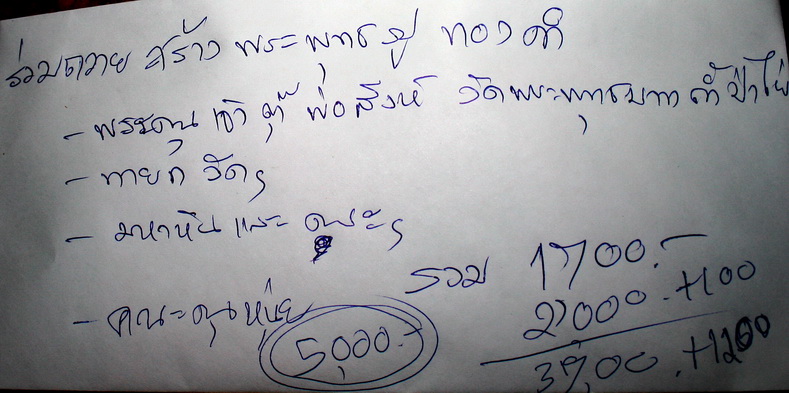 ร่วมถวาย สร้าง พระพุทธรูป ทองคำ
- พระคุณเจ้า ตุ๊ พ่อสิงห์ วัดพระพุทธบาทถ้ำป่าไผ่
- ทายก วัดๆ
- มหาหิน และ คณะๆ
- คณะคุณหนุ่ย
รวม 1700.-
2000.+100
5,000.-
3700.+1200